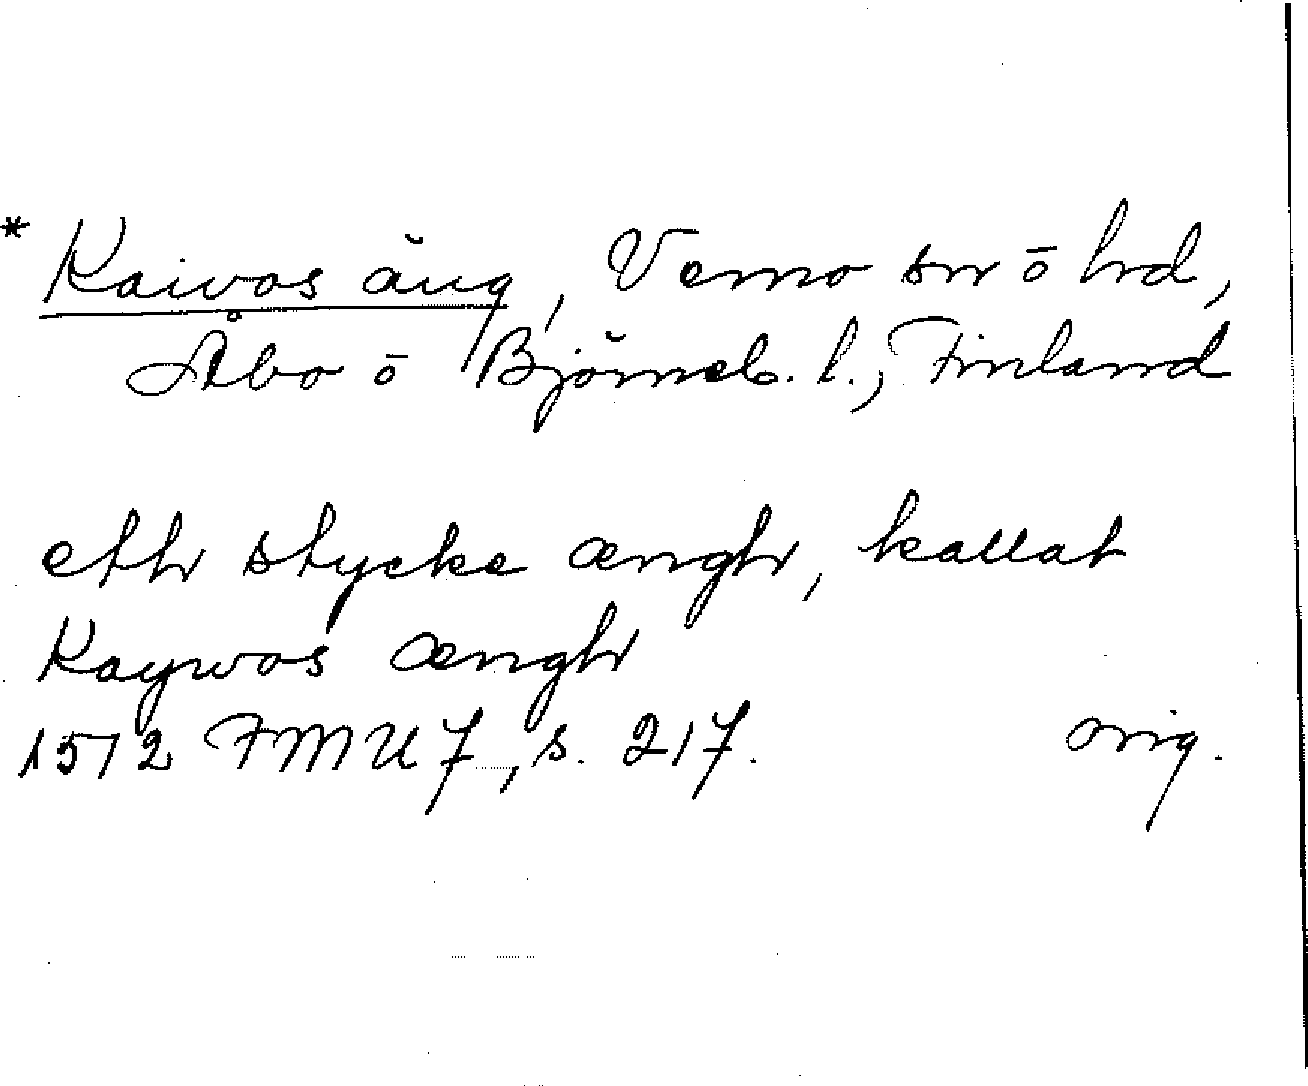 * Kaivos äng, Vemo sn ō hd,
Åbo ō Björneb. l., Finland
eth stycke ængh, kallat
Kaywos ængh
1512 FMU 7, s. 217. orig.